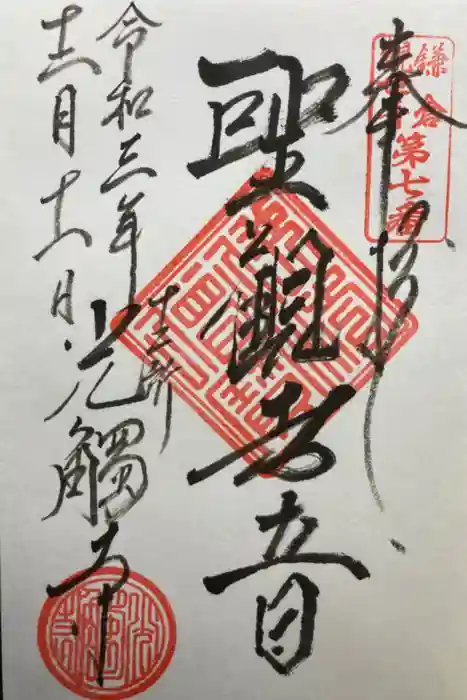 鎌倉
第七番
奉拝
聖觀世音
十二所
光觸寺
令和三年
十二月十二日